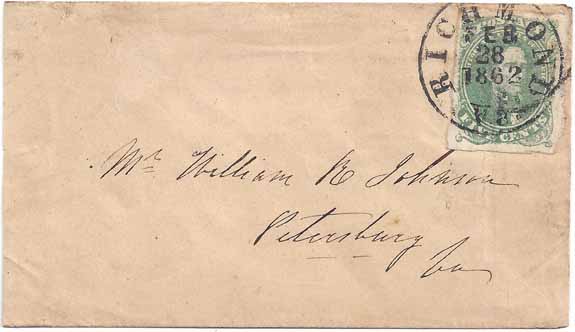 RICHMOND
FEB
28
1862
Va
FIVE CENTS
Mr William R Johnson
Petersburg
Va